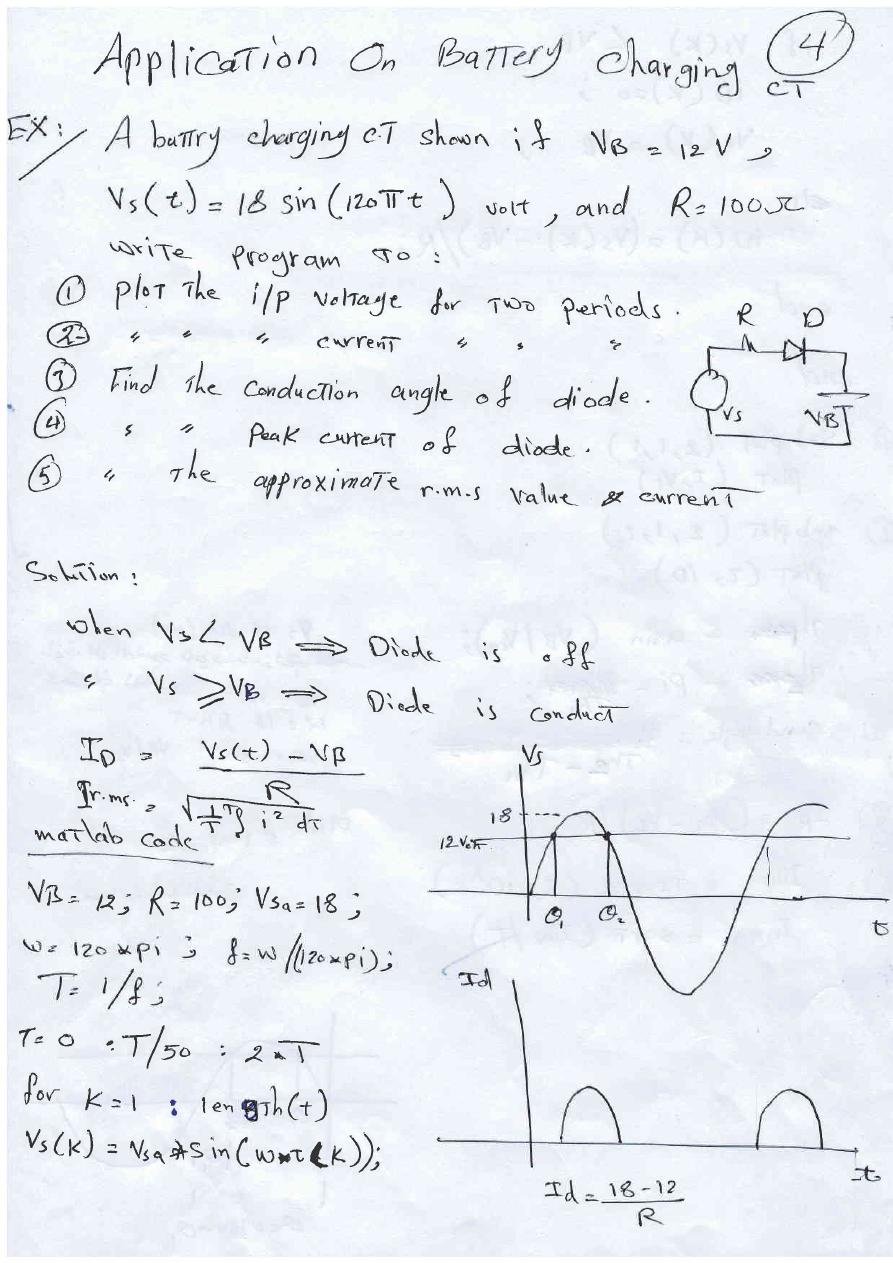 4
Application On Battery Charging CT
EX: A battry charging CT shown if VB = 12 V,
Vs(t) = 18 sin(120πt) volt, and R=100Ω
write program To:
① plot The i/p voltage for two periods.
②- " " " current " " "
③ Find The conduction angle of diode.
④ " " Peak current of diode.
⑤ " The approximate r.m.s value & current
R D
Vs VB
Solution:
when Vs < VB ⇒ Diode is off
" Vs ⩾ VB ⇒ Diode is conduct
ID = Vs(t) - VB / R
Ir.ms. = √ 1/T ∫ i² dT
matlab code
VB= 12; R= 100; Vsa=18;
w= 120*pi; f=w/(120*pi);
T= 1/f;
T= 0 :T/50 : 2*T
for K=1 : length(t)
Vs(K) = Vsa*Sin(w*t(K));
Vs
18
12 Volt
θ₁ θ₂ t
Id
t
Id = 18-12 / R